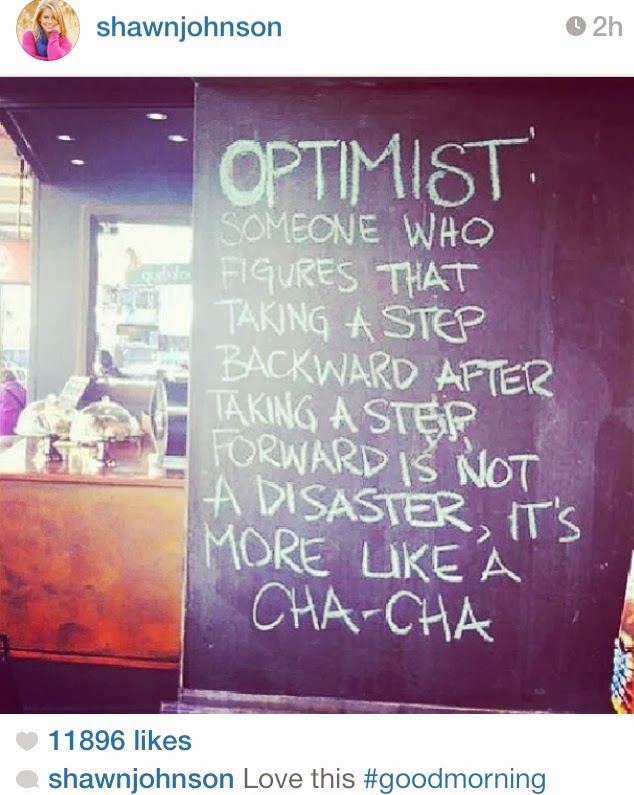 shawnjohnson
2h
OPTIMIST:
SOMEONE WHO
FIGURES THAT
TAKING A STEP
BACKWARD AFTER
TAKING A STEP
FORWARD IS NOT
A DISASTER, IT'S
MORE LIKE A
CHA-CHA
11896 likes
shawnjohnson Love this #goodmorning